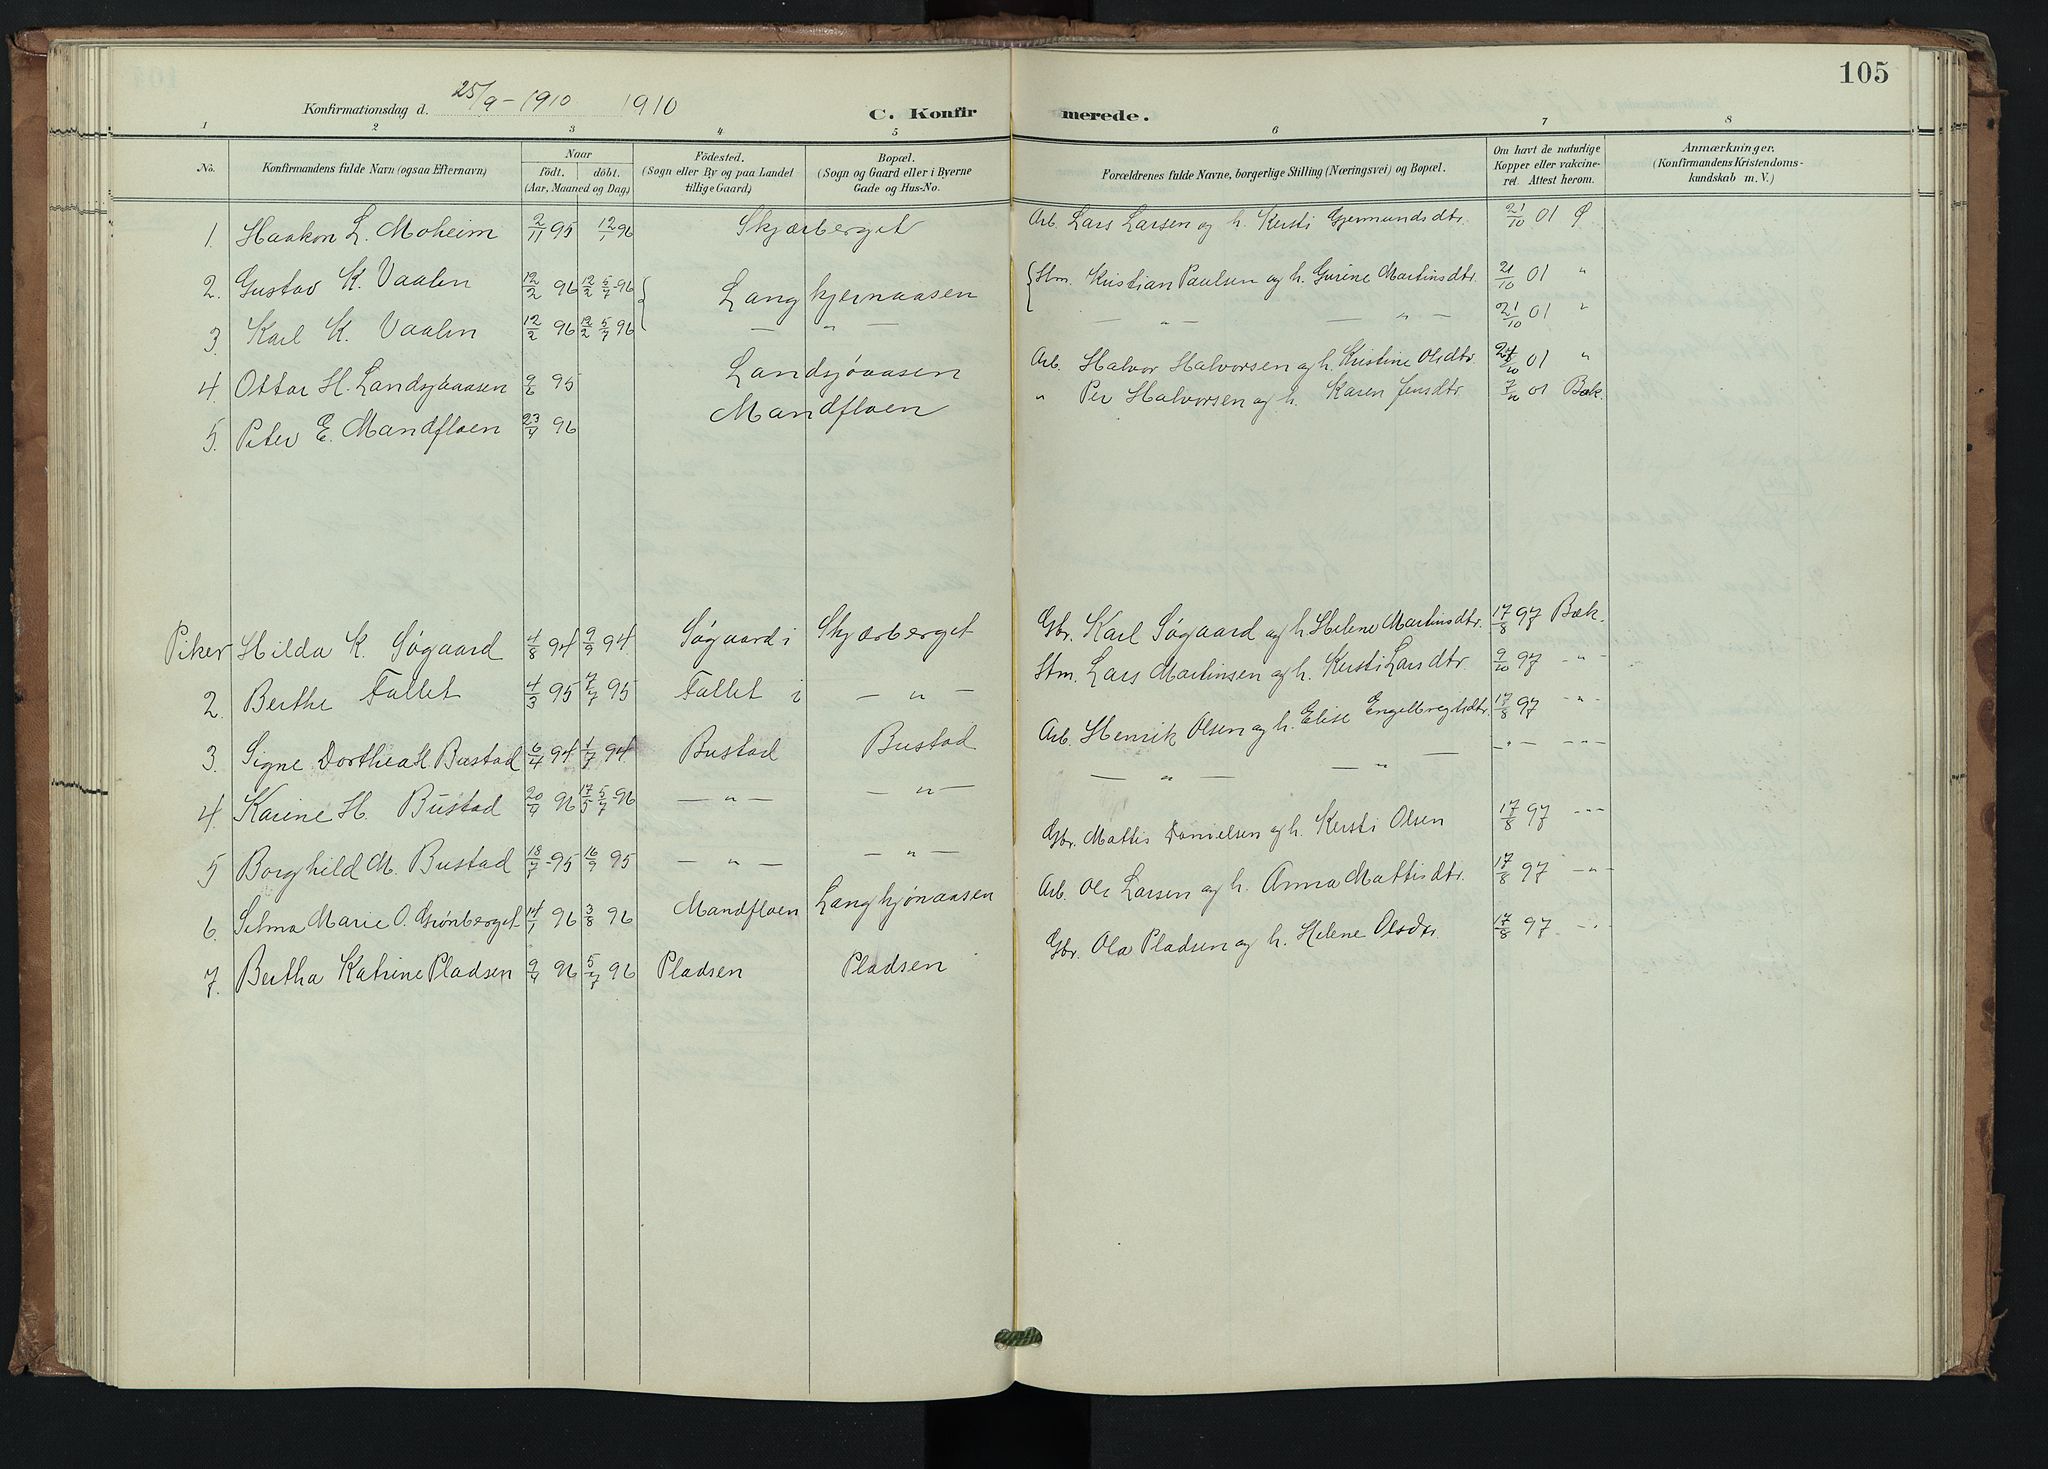 105
Konfirmationsdag d. 25/9 - 1910 1910 C. Konfirmerede.
1 2 3 4 5 6 7 8
No. Konfirmandens fulde Navn (ogsaa Efternavn) Naar födt. döbt. (Aar, Maaned og Dag) Födested. (Sogn eller By og paa Landet tillige Gaard) Bopæl. (Sogn og Gaard eller i Byerne Gade og Hus-No. Forældrenes fulde Navne, borgerlige Stilling (Næringsvei) og Bopæl. Om havt de naturlige Kopper eller vakcineret. Attest herom. Anmærkninger. (Konfirmandens Kristendomskundskab m. V.)
1. Haakon L. Moheim 2/11 95 12/1 96 Skjærberget Arb. Lars Larsen og h. Kersti Gjermundsdtr. 21/10 01 Ø
2. Gustav K. Vaalen 12/2 96 12/2 5/7 96 Langkjernaasen Stm. Kristian Paulsen og h. Gurine Martinsdtr. 21/10 01 "
3. Karl K. Vaalen 12/2 96 12/2 5/7 96 — " — — " — — " — 21/10 01 "
4. Ottar H. Landsjøaasen 9/6 95 Landsjøaasen Arb. Halvor Halvorsen og h. Kristine Olsdtr. 01 "
5. Peter E. Mandfloen 23/4 96 Mandfloen " Per Halvorsen og h. Karen Jensdtr. 01 Bæk.
Piker Hilda K. Søgaard 4/8 94 9/9 94 Søgaard i Skjærberget Gbr. Karl Søgaard og h. Helene Martinsdtr. 17/8 97 Bæk.
2. Berthe Fallet 4/3 95 7/7 95 Fallet i — " — Stm. Lars Martinsen og h. Kersti Larsdtr. 9/10 97 - " -
3. Signe Dorthea H. Bustad 6/4 94 1/7 94 Bustad Bustad Arb. Henrik Olsen og h. Elise Engelbregtsdtr. 17/8 97 - " -
4. Karine H. Bustad 20/4 96 17/5 5/7 96 — " — — " — — " — — " — - " - - " -
5 Borghild M. Bustad 18/7 - 95 16/9 95 — " — — " — Gbr. Mattis Danielsen og h. Kersti Olsen 17/8 97 - " -
6. Selma Marie O. Grønberget 14/1 96 3/8 96 Mandfloen Langkjønaasen Arb. Ole Larsen og h. Anna Mattisdtr. 17/8 97 - " -
7. Bertha Katrine Pladsen 9/4 96 5/7 96 Pladsen Pladsen Gbr. Ola Pladsen og h. Helene Olsdtr. 17/8 97 - " -